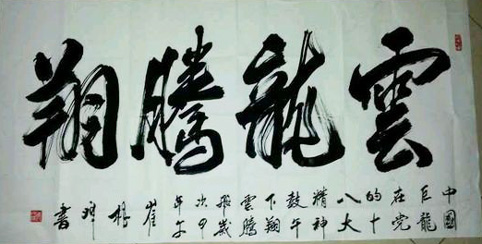 雲龍騰翔
中國
巨龍
在党
的十
八大
精神
鼓午
下翔
雲騰
飛歲
次甲
午年
崔
書